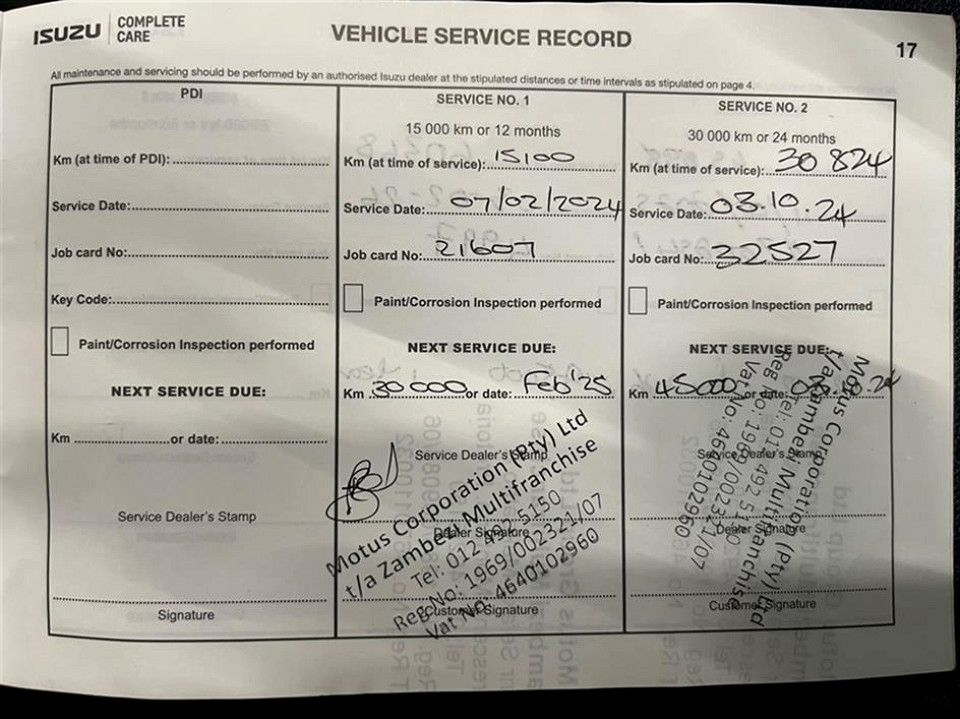 ISUZU COMPLETE CARE
VEHICLE SERVICE RECORD
17
All maintenance and servicing should be performed by an authorised Isuzu dealer at the stipulated distances or time intervals as stipulated on page 4.
PDI
Km (at time of PDI):
Service Date:
Job card No:
Key Code:
Paint/Corrosion Inspection performed
NEXT SERVICE DUE:
Km or date:
Service Dealer's Stamp
Signature
SERVICE NO. 1
15 000 km or 12 months
Km (at time of service): 15100
Service Date: 07/02/2024
Job card No: 21607
Paint/Corrosion Inspection performed
NEXT SERVICE DUE:
Km 30 000 or date: Feb'25
Service Dealer's Stamp
Dealer Signature
Customer Signature
Motus Corporation (Pty) Ltd
t/a Zambezi Multifranchise
Tel: 012 492 5150
Reg No: 1969/002321/07
Vat No: 4640102960
SERVICE NO. 2
30 000 km or 24 months
Km (at time of service): 30 824
Service Date: 03.10.24
Job card No: 32527
Paint/Corrosion Inspection performed
NEXT SERVICE DUE:
Km 45000 or date:
Service Dealer's Stamp
Dealer Signature
Customer Signature
Motus Corporation (Pty) Ltd
t/a Zambezi Multifranchise
Tel: 012 492 51
Reg No: 1969/002321/07
Vat No: 4640102960